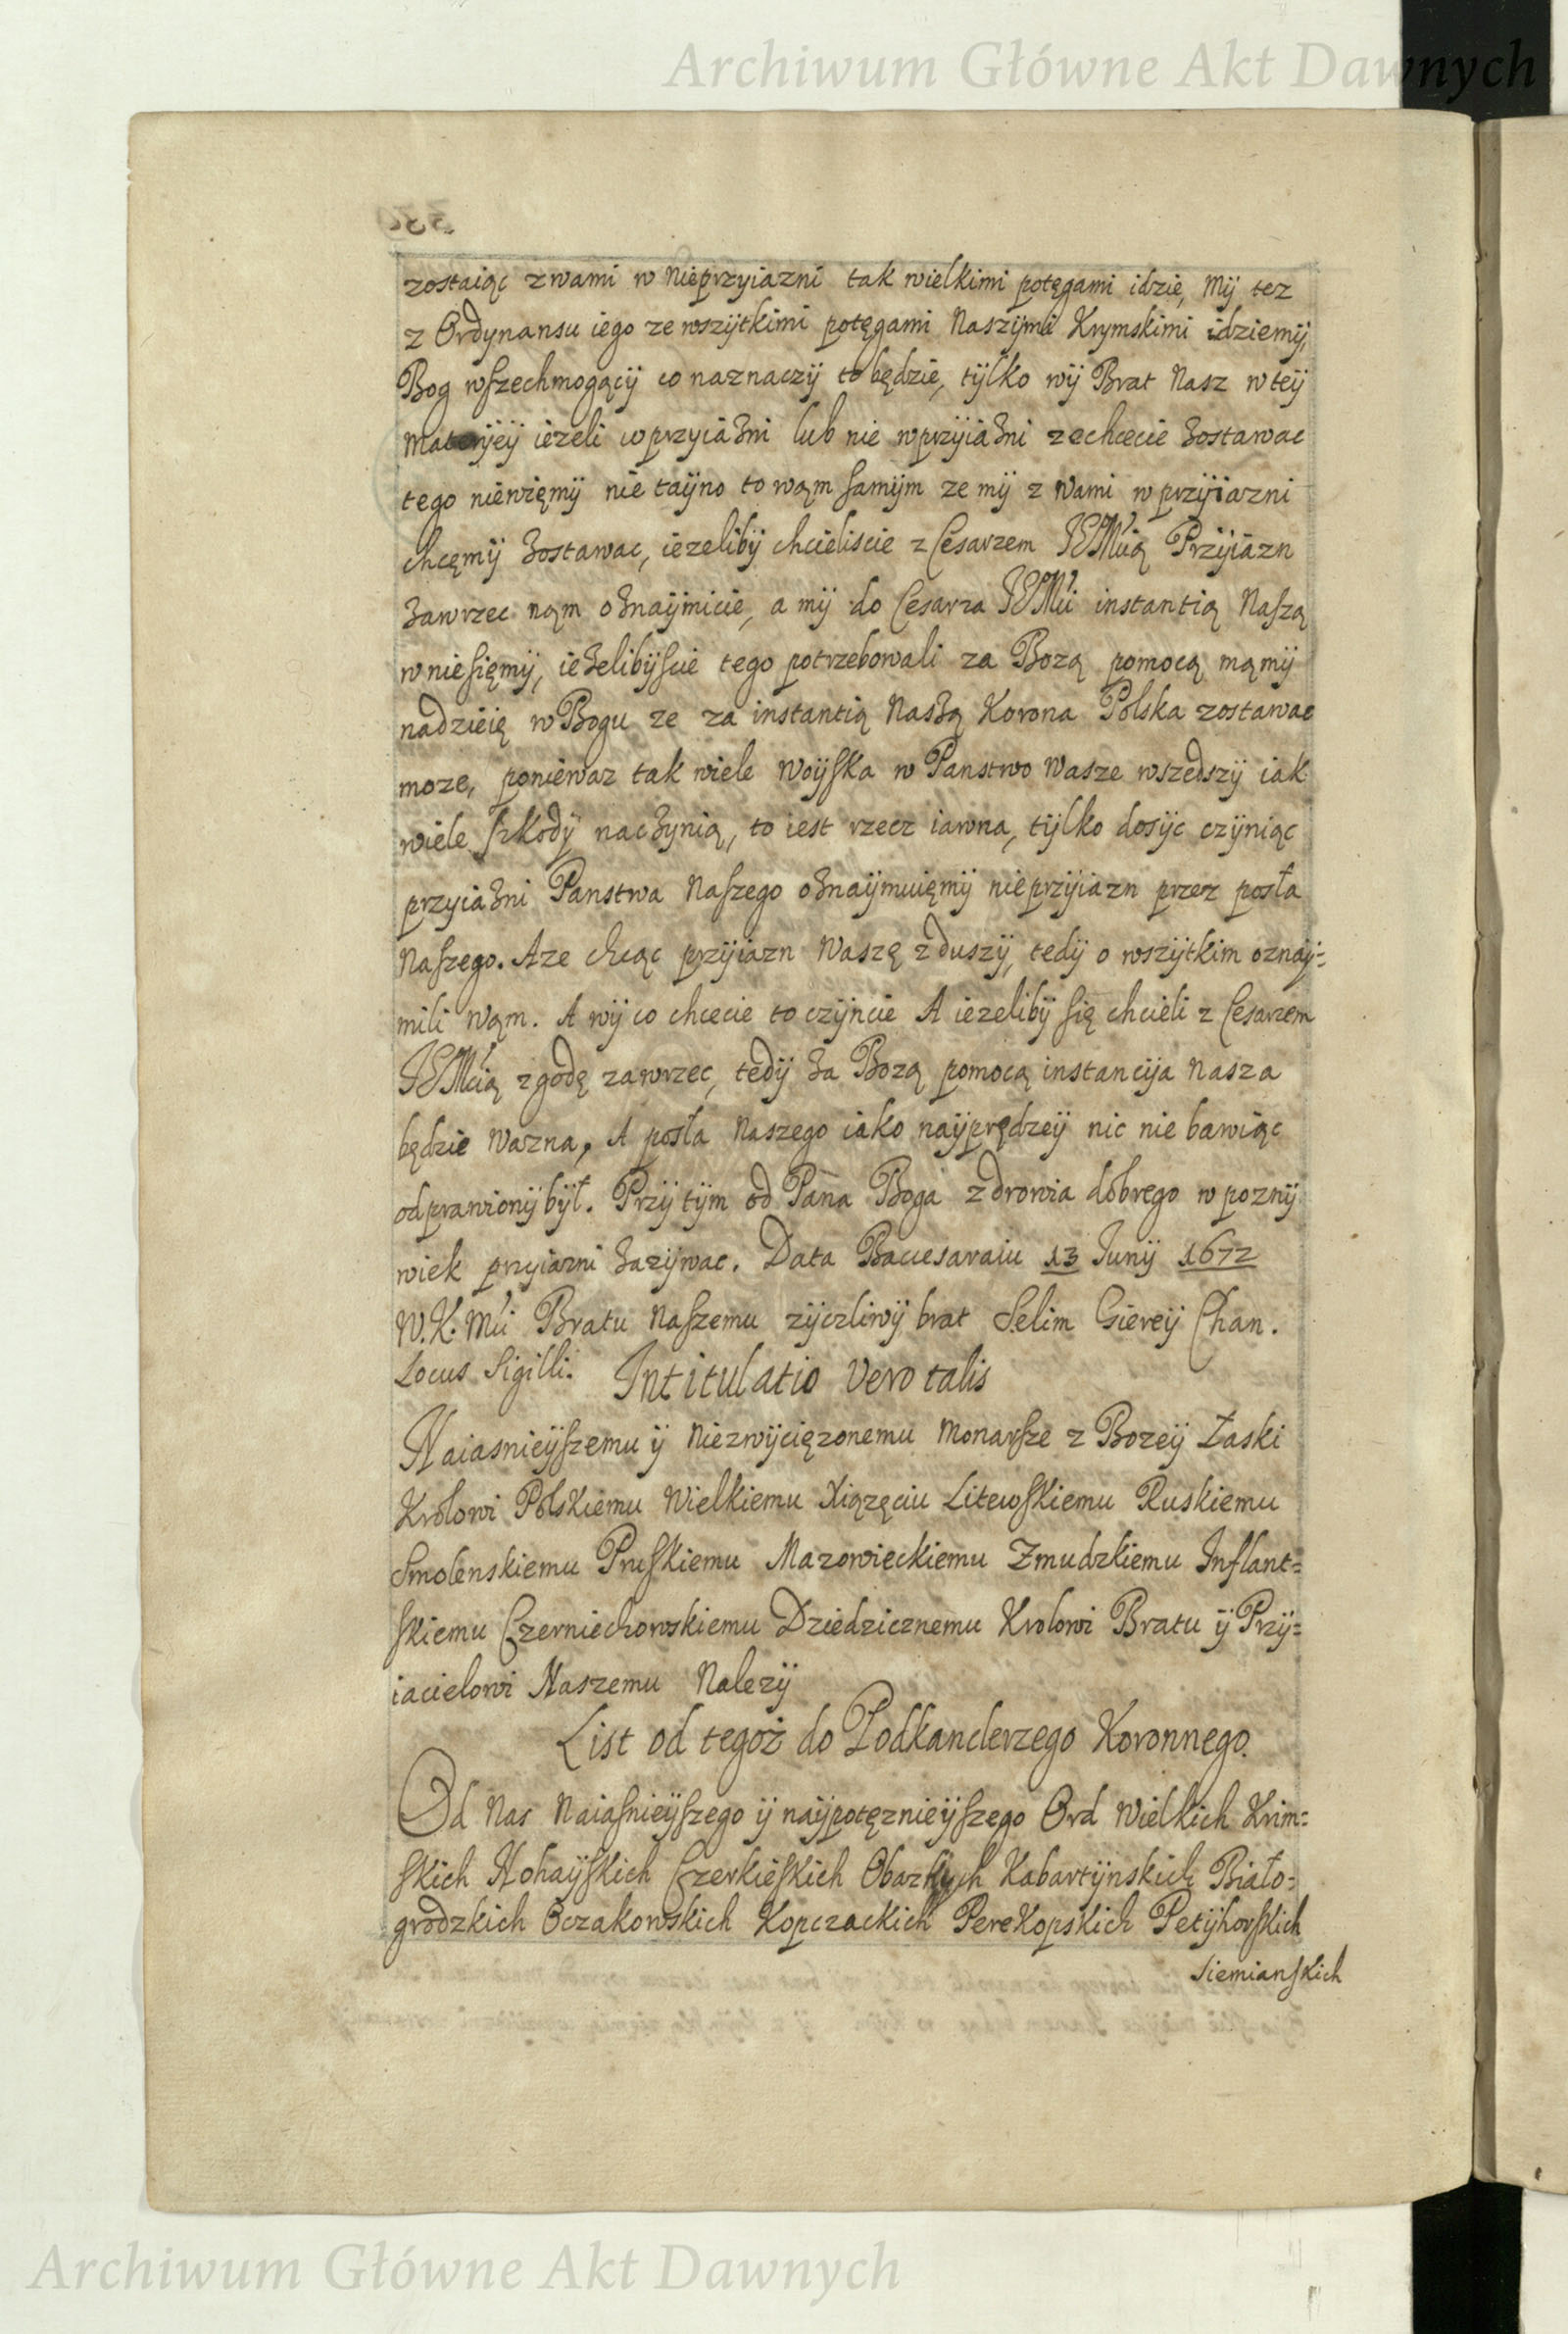 Archiwum Główne Akt Dawnych
zostaiąc z wami w Nieprzyiazni tak wielkimi potęgami idzie, Mÿ tez
z Ordynansu iego ze wszÿtkimi potęgami Naszÿmi Krymskimi idziemÿ,
Bog wszechmogącÿ co naznaczÿ to będzie, tÿlko wÿ Brat Nasz w teÿ
Materÿeÿ iezeli w przyiaźni lub nie w przÿiaźni zechcecie zostawac
tego niewięmÿ nie taÿno to wąm samÿm ze mÿ z Wami w przÿiazni
chcęmÿ zostawac, iezelibÿ chcieliscie z Cesarzem JEMcią Przÿiazn
zawrzec nąm oznaÿmicie, a mÿ do Cesarza JEMci instantią Naszą
w niesięmÿ, iezelibÿscie tego potrzebowali za Bozą pomocą mąmÿ
nadzieię w Bogu ze za instantią Naszą Korona Polska zostawac
moze, poniewaz tak wiele Woÿska w Panstwo Wasze wszedszÿ iak
wiele szkodÿ naczynią, to iest rzecz iawna, tÿlko dosÿc czÿniąc
przyiazni Panstwa Naszego oznaÿmuięmÿ nieprzÿiazn przez posła
Naszego. Aze chcąc przÿiazn Waszę z duszÿ, tedÿ o wszÿtkim oznaÿ=
mili Wąm. A wÿ co chcecie to czÿncie A iezelibÿ się chcieli z Cesarzem
JEMcią zgodę zawrzec, tedÿ za Bozą pomocą instancÿa Nasza
będzie Wazna, A posła Naszego iako naÿprędzeÿ nic nie bawiąc
odprawionÿ bÿł. Przÿ tÿm od Pana Boga zdrowia dobrego w poznÿ
wiek przyiazni zazÿwac. Data Baccesaraiu 13 Junÿ 1672
W.K.Mci Bratu Naszemu zÿczliwÿ brat Selim Giereÿ Chan.
Locus Sigilli. Intitulatio Vero talis
Naiasnieÿszemu ÿ Niezwÿcięzonemu Monarsze z Bozeÿ Łaski
Krolowi Polskiemu Wielkiemu Xiązęciu Litewskiemu Ruskiemu
Smolenskiemu Pruskiemu Mazowieckiemu Zmudzkiemu Inflant=
skiemu Czerniechowskiemu Dziedzicznemu Krolowi Bratu ÿ Przÿ=
iacielowi Naszemu Nalezÿ
List od tegoż do Podkanclerzego Koronnego.
Od Nas Naiasnieÿszego ÿ naÿpotęznieÿszego Ord Wielkich Krim=
skich Nohaÿskich Czerkieskich Kabartÿnskich Biało=
grodzkich Oczakowskich Kopczackich Perekopskich Petÿhorskich
Siemianskich
Archiwum Główne Akt Dawnych